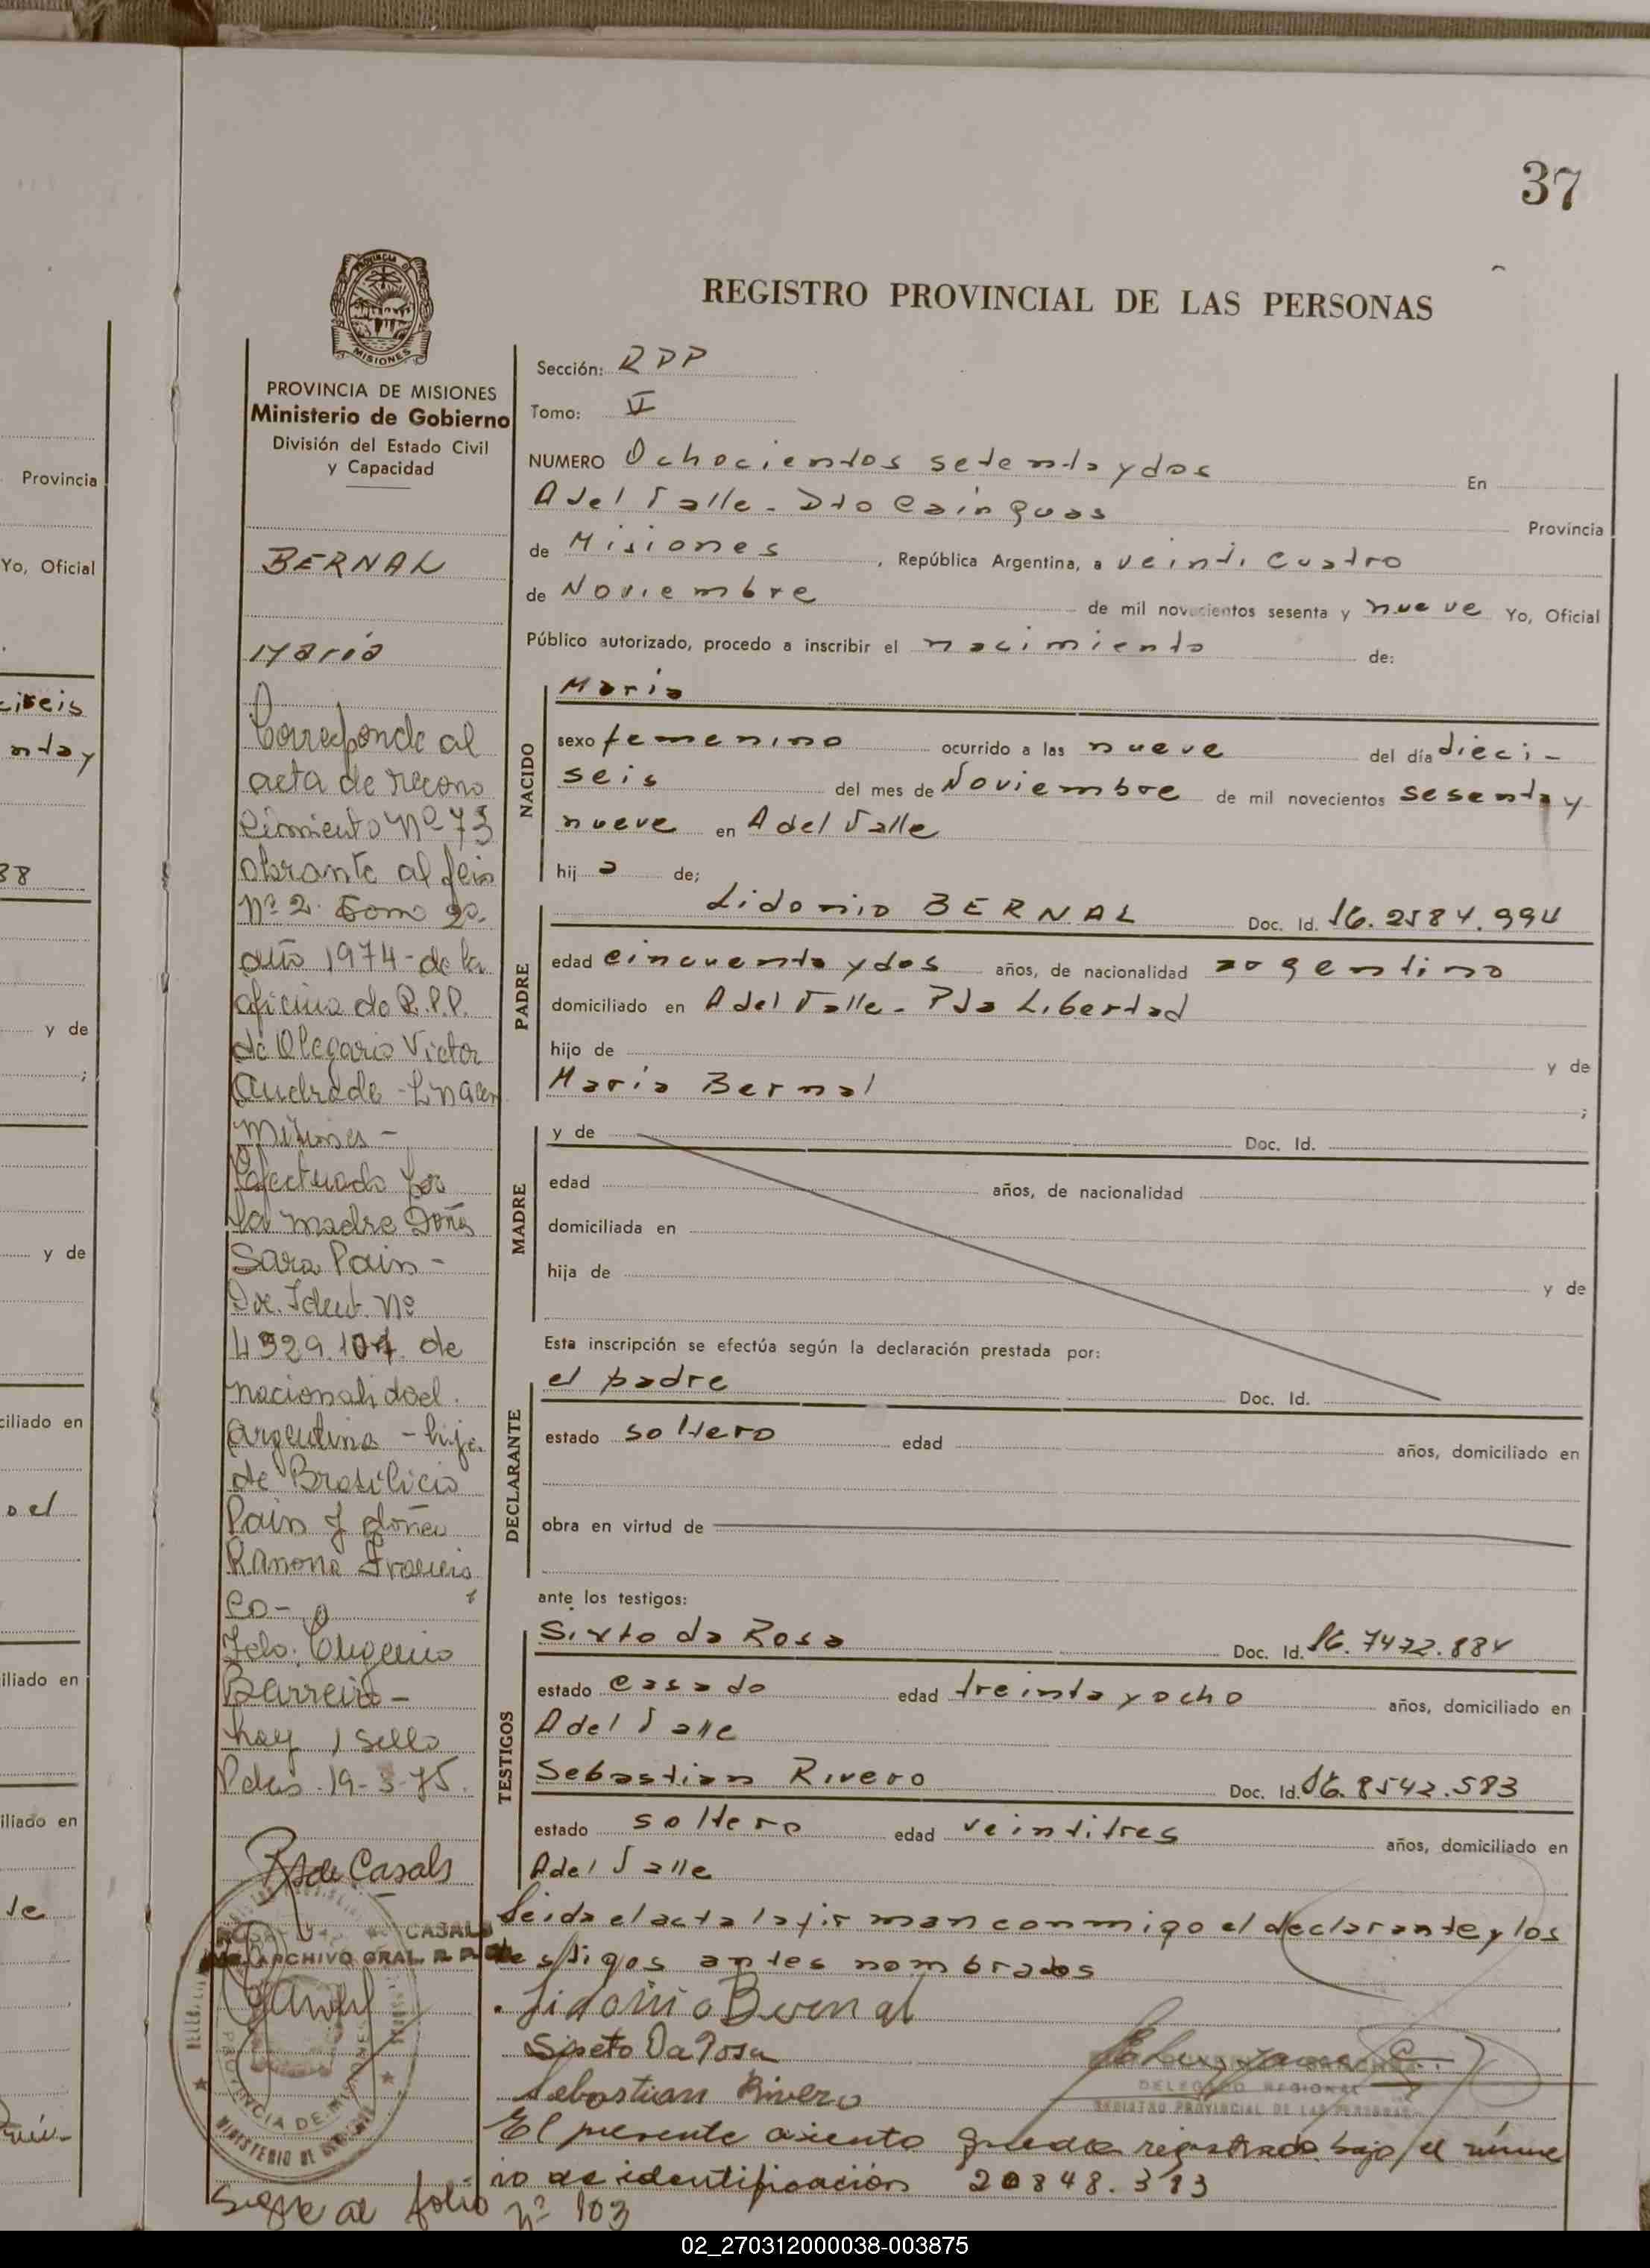 37
REGISTRO PROVINCIAL DE LAS PERSONAS
PROVINCIA DE MISIONES
Ministerio de Gobierno
División del Estado Civil
y Capacidad
BERNAL
María
Corresponde al
acta de recono
cimiento Nº 73
obrante al
Nº 2. Tomo 2º.
año 1974 - de la
oficina de R.P.P.
de Olegario Victor
Andrade -
Misiones -
Efectuado por
la madre Doña
Sara Pain -
Doc. Ident. Nº
de
nacionalidad
argentina - hija
de Brasilicio
Pain y doña
Ramona Francis
co -
Fdo. Eugenio
Barreiro -
hay 1 sello
Pdas. 19-3-75.
R. de Casals
CASALS
ARCHIVO GRAL. R. P. P.
PROVINCIA DE MISIONES
MINISTERIO DE GOBIERNO
Sigue al folio nº 103
Sección: RPP
Tomo: VI
NUMERO Ochocientos setenta y dos En
A del Valle - Dto Cainguas Provincia
de Misiones , República Argentina, a veinticuatro
de Noviembre de mil novecientos sesenta y nueve Yo, Oficial
Público autorizado, procedo a inscribir el nacimiento de:
NACIDO
María
sexo femenino ocurrido a las nueve del día dieci-
seis del mes de Noviembre de mil novecientos sesenta y
nueve en A del Valle
hij a de;
PADRE
Lidonio BERNAL Doc. Id.
edad cincuenta y dos años, de nacionalidad argentino
domiciliado en A del Valle - Pda Libertad
hijo de y de
María Bernal ;
MADRE
y de Doc. Id.
edad años, de nacionalidad
domiciliada en
hija de y de
Esta inscripción se efectúa según la declaración prestada por:
DECLARANTE
el padre Doc. Id.
estado soltero edad años, domiciliado en
obra en virtud de
ante los testigos:
TESTIGOS
Sixto da Rosa Doc. Id.
estado casado edad treinta y ocho años, domiciliado en
A del Valle
Sebastian Rivero Doc. Id.
estado soltero edad veintitres años, domiciliado en
A del Valle
Leida el acta la firman conmigo el declarante y los
testigos antes nombrados
Lidonio Bernal
Sixto Da Rosa
Sebastian Rivero
DELEGADO REGIONAL
REGISTRO PROVINCIAL DE LAS PERSONAS
El presente asiento queda registrado bajo el núme
ro de identificación 20848.393
Provincia
Yo, Oficial
y de
;
y de
ciliado en
iliado en
iliado en
02_270312000038-003875